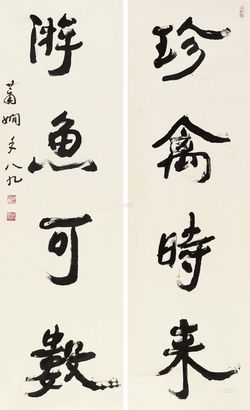 珍禽時来
游魚可數
蕭嫻年八九